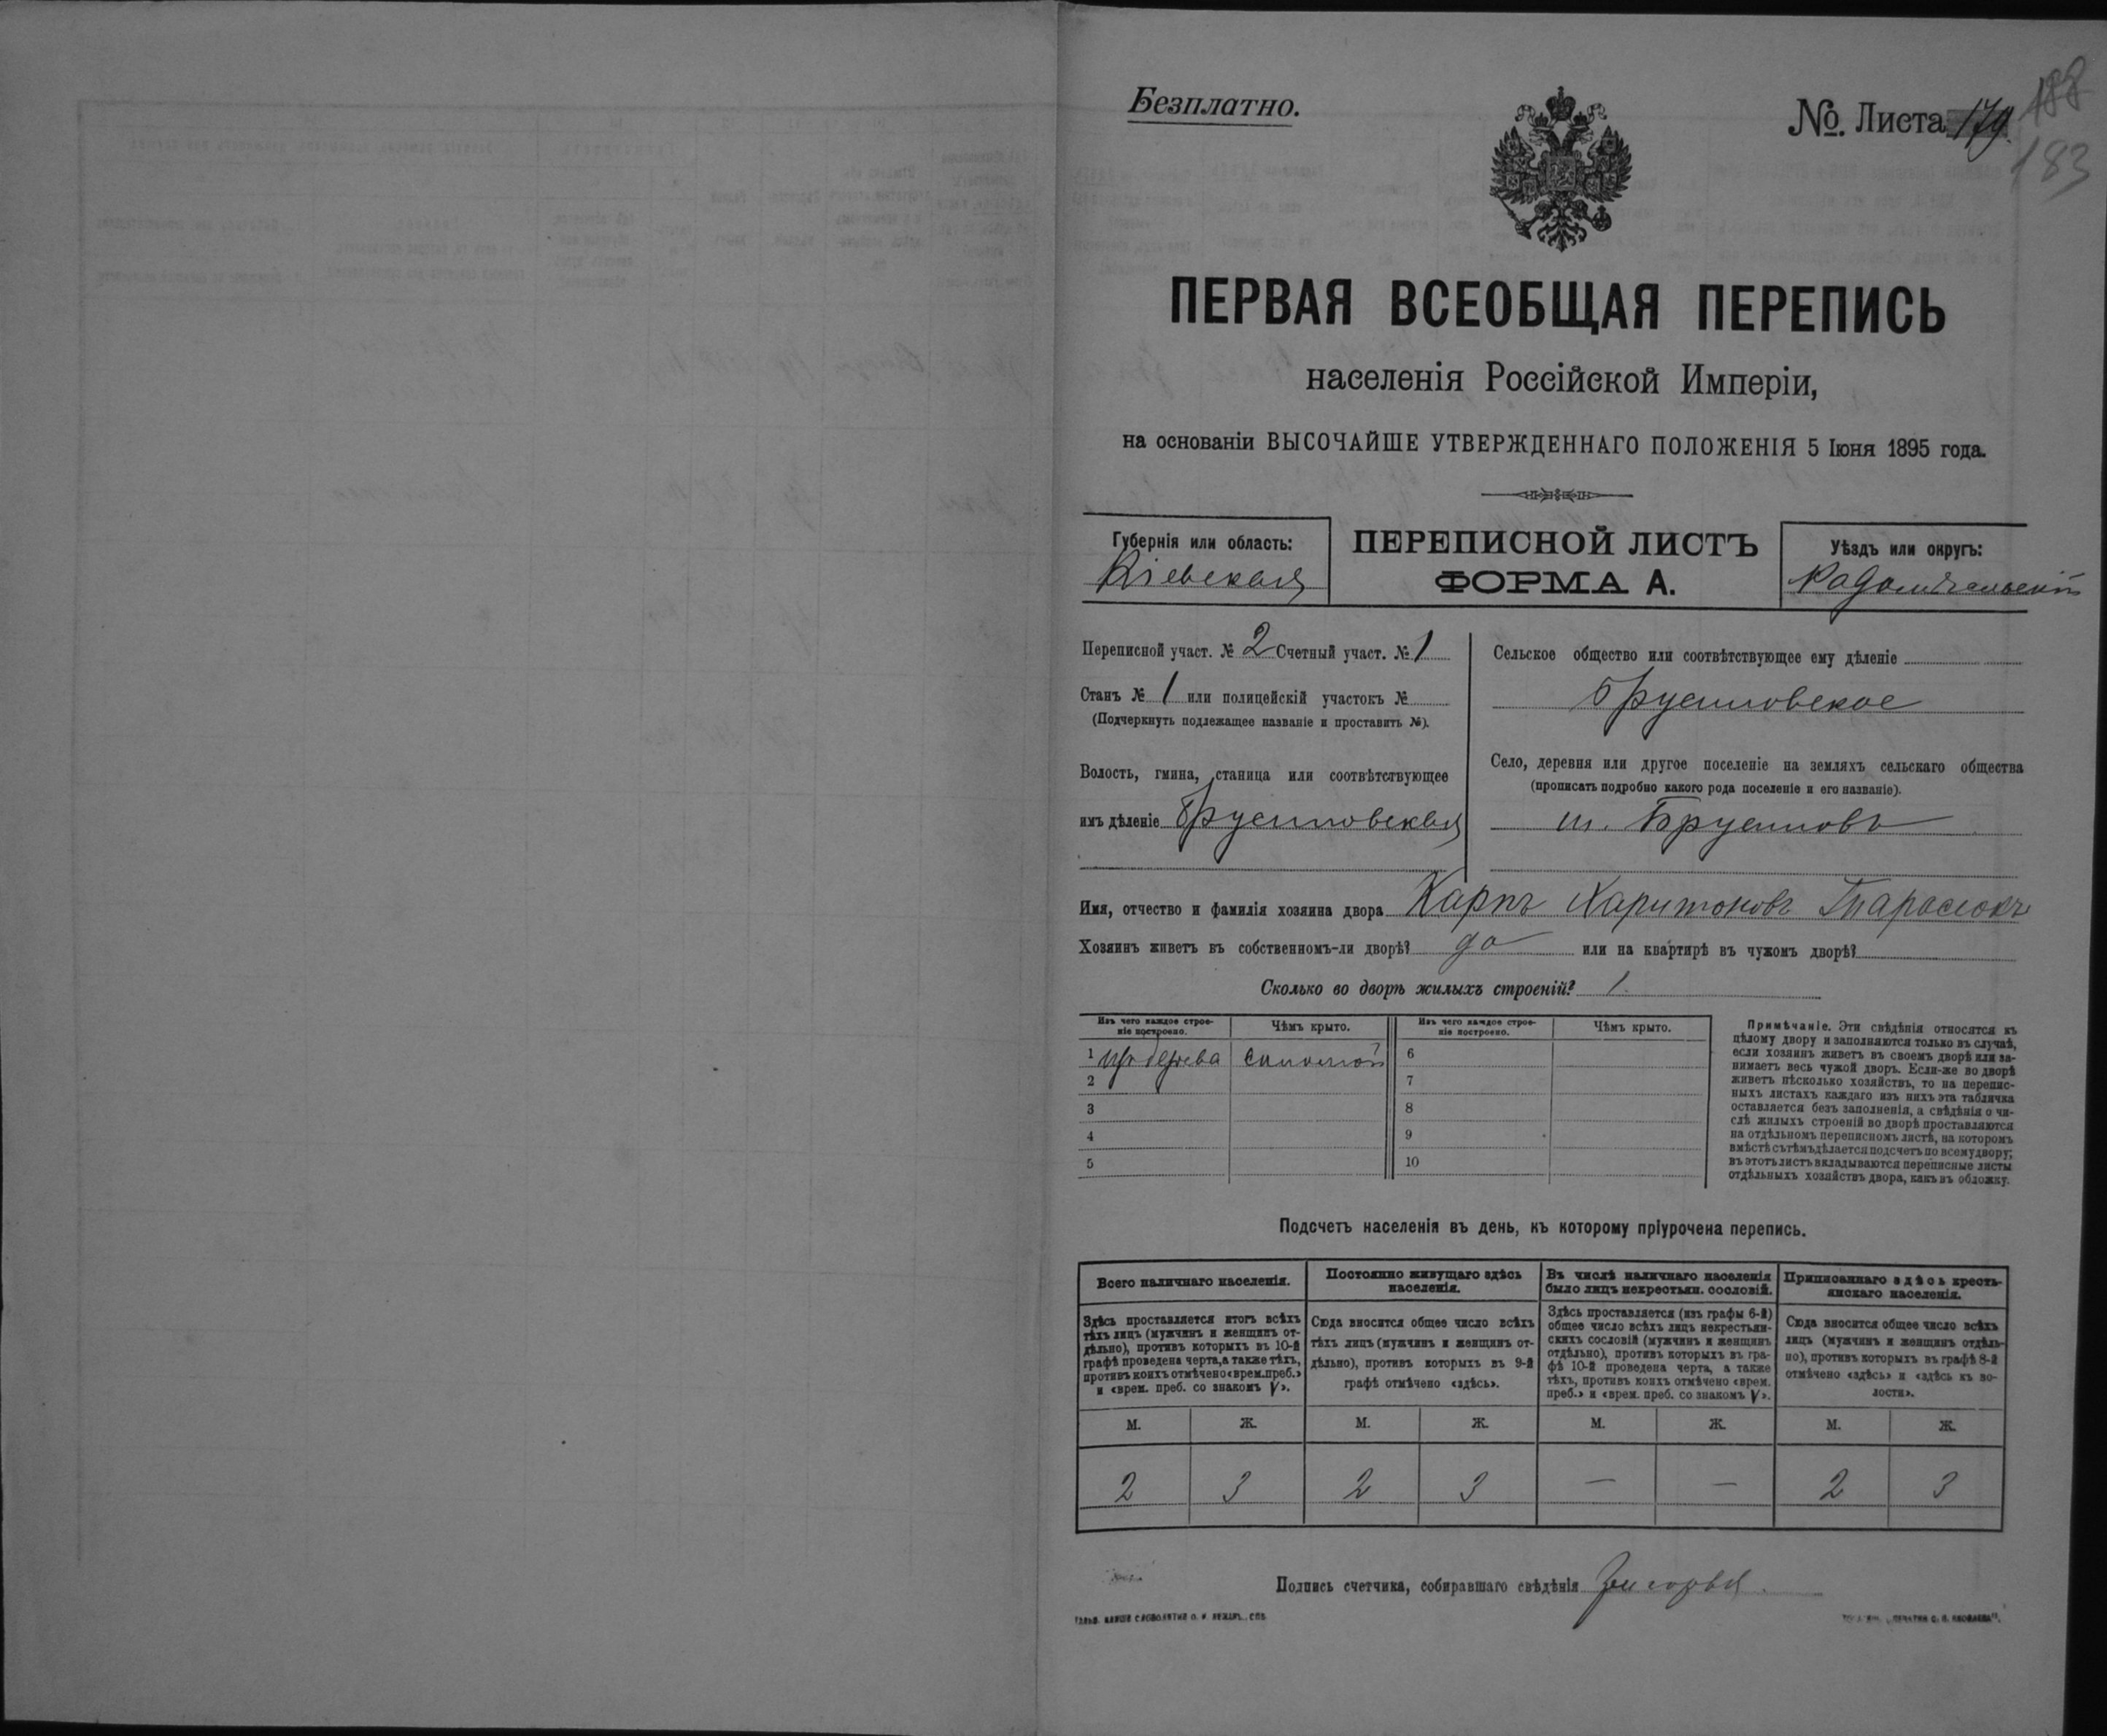 Безплатно.
№. Листа 179.
188
183
ПЕРВАЯ ВСЕОБЩАЯ ПЕРЕПИСЬ
населенія Россійской Имперіи,
на основаніи ВЫСОЧАЙШЕ УТВЕРЖДЕННАГО ПОЛОЖЕНІЯ 5 Іюня 1895 года.
Губернія или область:
Кіевская
ПЕРЕПИСНОЙ ЛИСТЪ
ФОРМА А.
Уѣздъ или округъ:
Радомысльскій
Переписной участ. № 2 Счетный участ. № 1
Станъ № 1 или полицейскій участокъ №
(Подчеркнуть подлежащее названіе и проставить №).
Волость, гмина, станица или соотвѣтствующее
имъ дѣленіе Брусиловская
Сельское общество или соотвѣтствующее ему дѣленіе
Брусиловское
Село, деревня или другое поселеніе на земляхъ сельскаго общества
(прописать подробно какого рода поселеніе и его названіе).
м. Брусиловъ
Имя, отчество и фамилія хозяина двора Карпъ Харитоновъ Тарасюкъ
Хозяинъ живетъ въ собственномъ-ли дворѣ? да или на квартирѣ въ чужомъ дворѣ?
Сколько во дворѣ жилыхъ строеній? 1
Изъ чего каждое строе-
ніе построено.
Чѣмъ крыто.
Изъ чего каждое строе-
ніе построено.
Чѣмъ крыто.
1 изъ дерева соломой 6
2 7
3 8
4 9
5 10
Примѣчаніе. Эти свѣдѣнія относятся къ
цѣлому двору и заполняются только въ случаѣ,
если хозяинъ живетъ въ своемъ дворѣ или за-
нимаетъ весь чужой дворъ. Если-же во дворѣ
живетъ нѣсколько хозяйствъ, то на перепис-
ныхъ листахъ каждаго изъ нихъ эта табличка
оставляется безъ заполненія, а свѣдѣнія о чи-
слѣ жилыхъ строеній во дворѣ проставляются
на отдѣльномъ переписномъ листѣ, на которомъ
вмѣстѣ съ тѣмъ дѣлается подсчетъ по всему двору;
въ этотъ листъ вкладываются переписные листы
отдѣльныхъ хозяйствъ двора, какъ въ обложку.
Подсчетъ населенія въ день, къ которому пріурочена перепись.
Всего наличнаго населенія.
Здѣсь проставляется итогъ всѣхъ
тѣхъ лицъ (мужчинъ и женщинъ от-
дѣльно), противъ которыхъ въ 10-й
графѣ проведена черта, а также тѣхъ,
противъ коихъ отмѣчено «врем. преб.»
и «врем. преб. со знакомъ V».
Постоянно живущаго здѣсь
населенія.
Сюда вносится общее число всѣхъ
тѣхъ лицъ (мужчинъ и женщинъ от-
дѣльно), противъ которыхъ въ 9-й
графѣ отмѣчено «здѣсь».
Въ числѣ наличнаго населенія
было лицъ некрестьян. сословій.
Здѣсь проставляется (изъ графы 6-й)
общее число всѣхъ лицъ некрестьян-
скихъ сословій (мужчинъ и женщинъ
отдѣльно), противъ которыхъ въ гра-
фѣ 10-й проведена черта, а также
тѣхъ, противъ коихъ отмѣчено «врем.
преб.» и «врем. преб. со знакомъ V».
Приписаннаго здѣсь кресть-
янскаго населенія.
Сюда вносится общее число всѣхъ
лицъ (мужчинъ и женщинъ отдѣль-
но), противъ которыхъ въ графѣ 8-й
отмѣчено «здѣсь» и «здѣсь къ во-
лости».
М. Ж. М. Ж. М. Ж. М. Ж.
2 3 2 3 — — 2 3
Подпись счетчика, собиравшаго свѣдѣнія